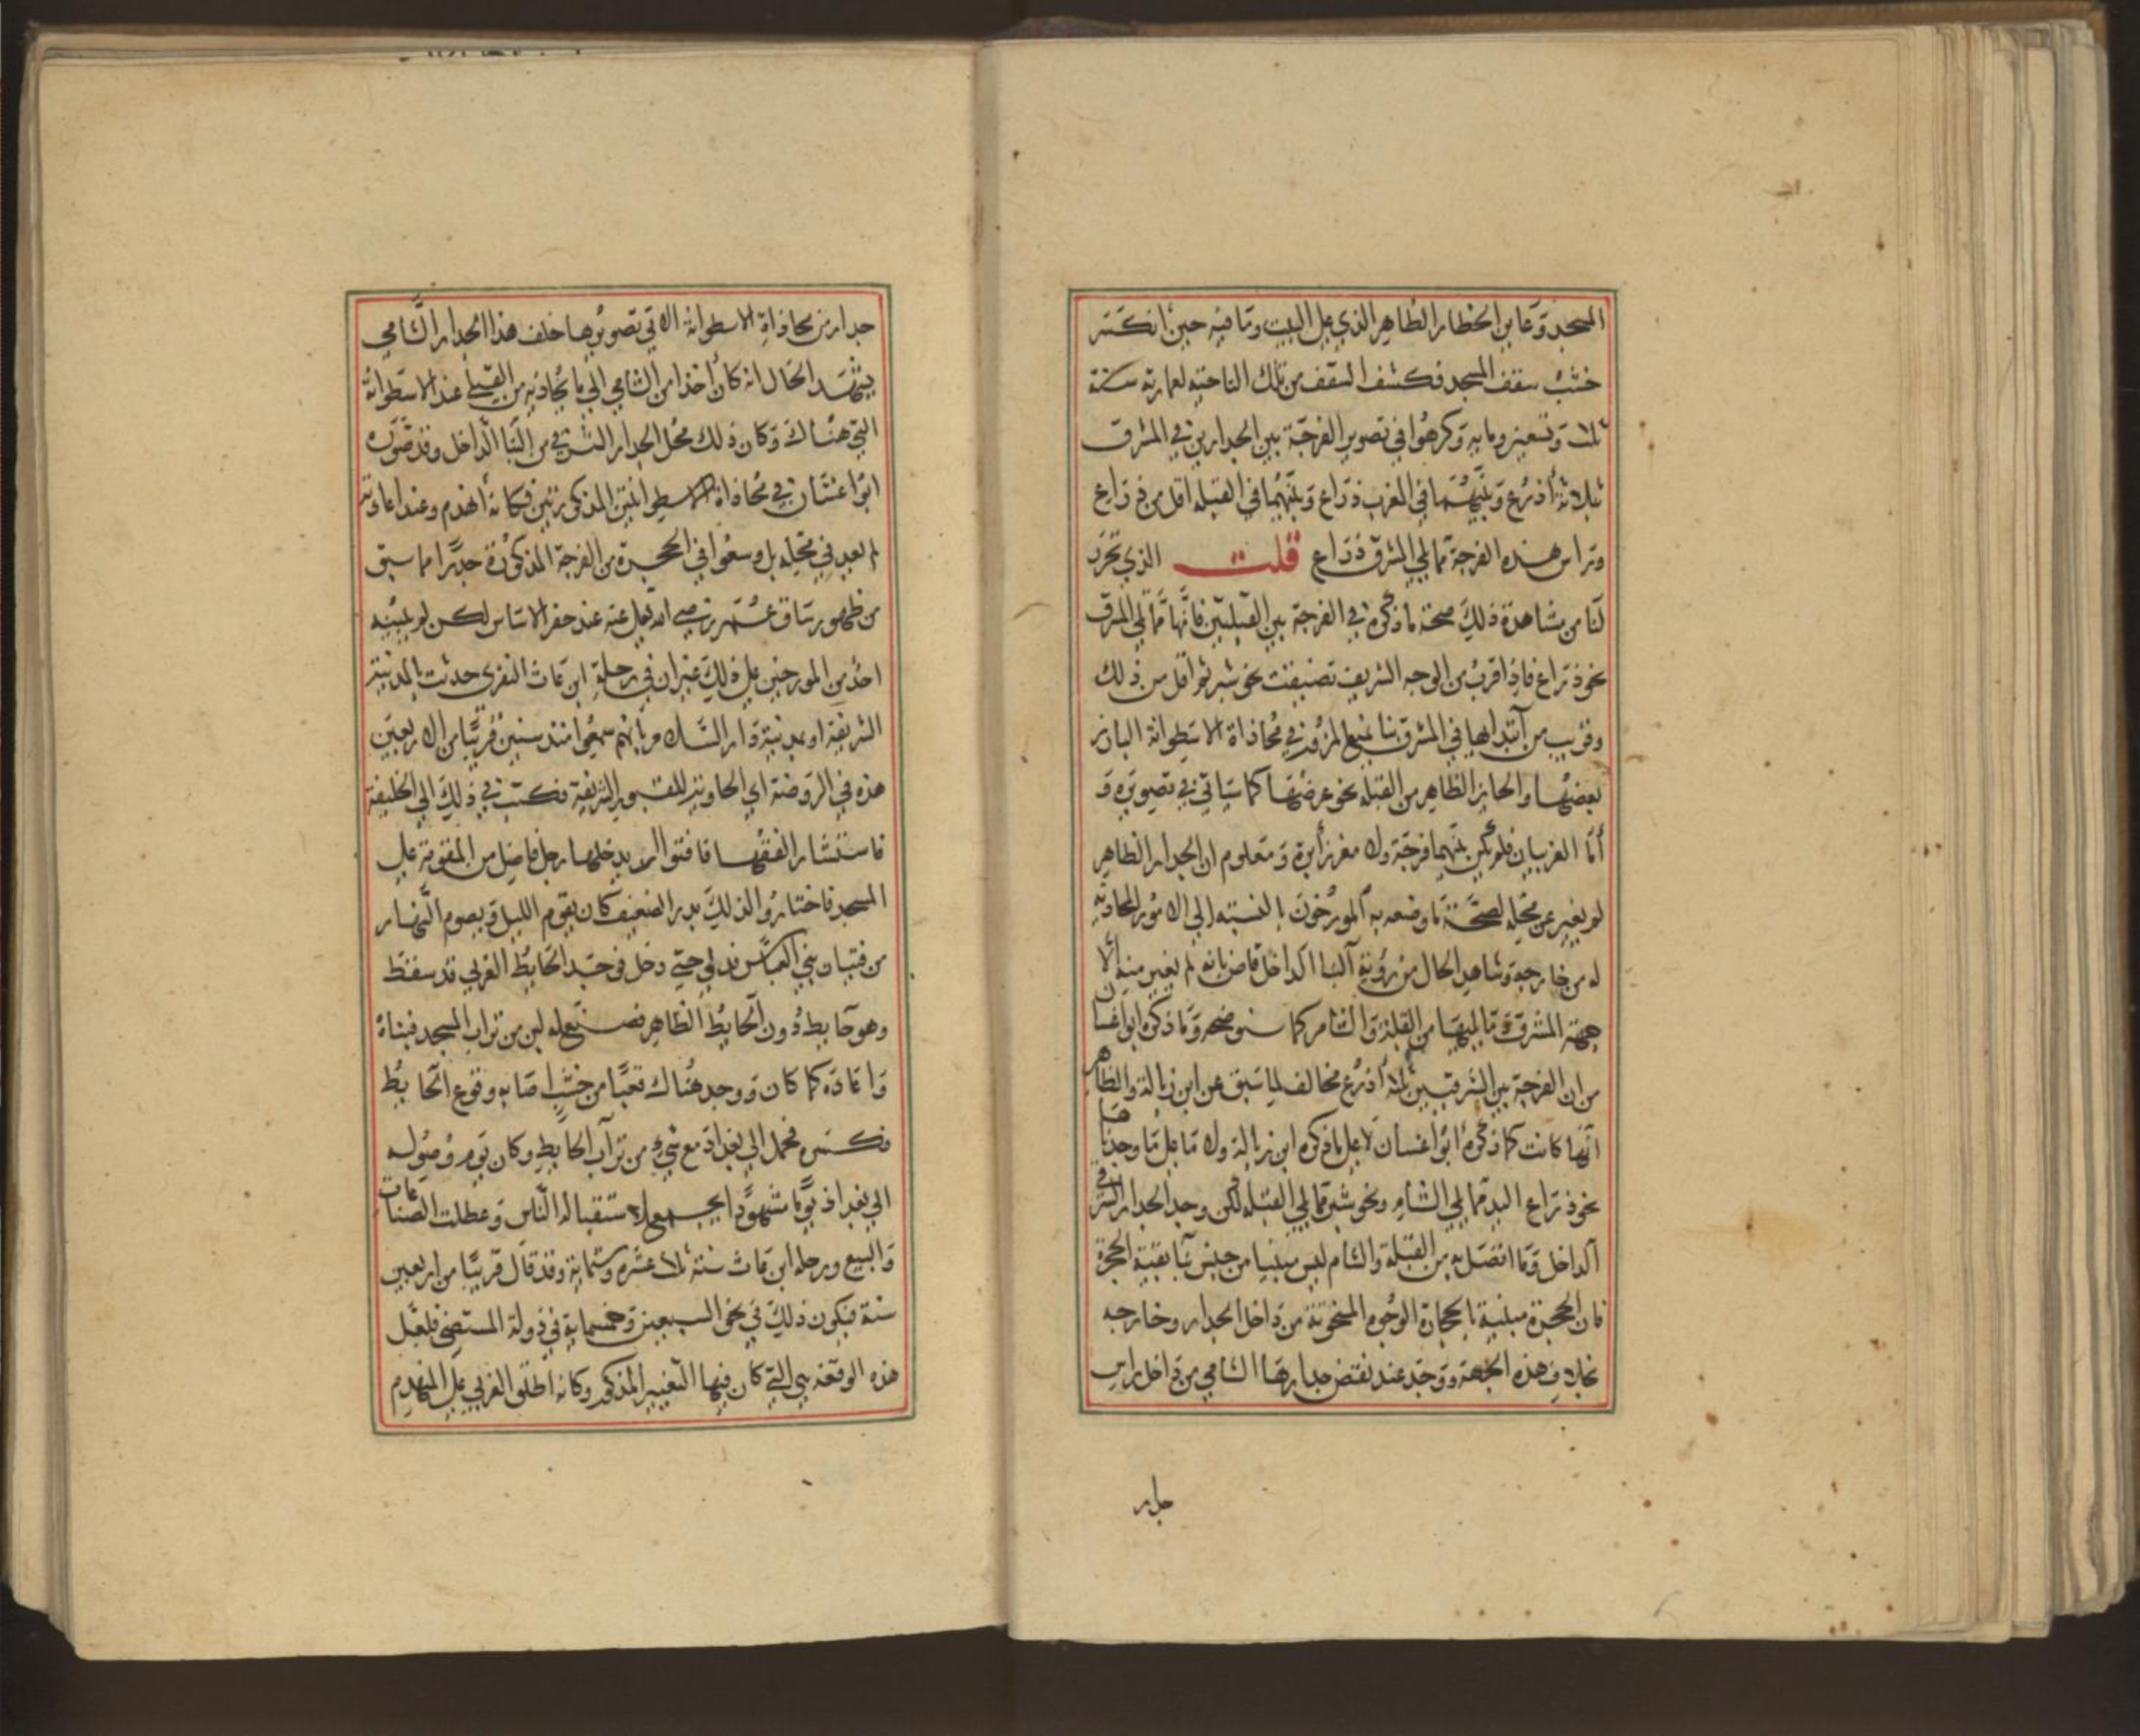 المسجد وعاين الحظار الظاهر الذي على البيت وما فيه حين انكسر
خشب سقف المسجد فكشف السقف من تلك الناحية لعمارته سنة
ثلاث وتسعين ومايه وذكر هوا في تصوير الفرجة بين الجدارين في المشرق
ثلاثة أذرع وبينهما في المغرب ذراع وبينهما في القبله اقل من ذراع
وراس هذه الفرجة مما يلي المشرق ذراع قلت الذي تحرر
لنا من مشاهدة ذلك صحة ما ذكره في الفرجة بين القبليين فانها مما يلي المشرق
نحو ذراع فاذا قرب من الوجه الشريف تضيقت نحو شبر ثم اقل من ذلك
وقريب من ابتدايها في المشرق بنا يمنع المرور في محاذاة الاسطوانة البارز
بعضها والحايز الظاهر من القبله نحو عرضها كما سياتي في تصويره و
أما الغربيان فلم يكن بينهما فرجة ولا مغرز أبرة ومعلوم ان الجدار الظاهر
لم يغير عن محله لصحة ما وضعه به المورخون بالنسبة الى الامور المحاذيه
له من خارجه وشاهد الحال من رؤية البنا الداخل قاض بانه لم يغير منه الا
جهة المشرق وما يليها من القبلة والشام كما سنوضحه وما ذكره ابوا غسان
من ان الفرجة بين الشرقيين ثلاثة أذرع مخالف لما سبق عن ابن زبالة والظاهر
انها كانت كما ذكره ابوا غسان لا على ما ذكره ابن زبالة ولا ما على ما وجدناها
نحو ذراع اليد مما يلي الشام ونحو شبر مما يلي القبله لكن وجد الجدار الشرقي
الداخل وما اتصل به من القبلة والشام ليس مبنيا من جنس بنا بقية الحجرة
فان الحجرة مبنية بالحجارة الوجوه المنحوتة من داخل الجدار وخارجه
بخلاف هذه الجهة ووجد عند نقض جدارها الشامي من داخل راس
جدار
جدار من محاذاة الاسطوانة الاتي تصويرها خلف هذا الجدار الشامي
يشهد الحال انه كان أخذا من الشامي الى ما يحاذيه من القبلي عند الاسطوانة
التي هناك وكان ذلك محل الجدار الشرقي من البنا الداخل وقد صوره
ابوا غسان في محاذاة الاسطوانتين المذكورتين فكانه انهدم وعند اعادته
لم يعد في محله بل وسعوا في الحجرة من الفرجة المذكورة جدرا مما سبق
من ظهور ساق عمر رضي الله تعالى عنه عند حفر الاساس لكن لم ينبه
احد من المورخين على ذلك غير ان في رحلة ابن عاث النفزي حدثت بالمدينة
الشريفة او مدينة دار السلام بانهم سمعوا منذ سنين قريبا من الاربعين
هذه في الروضة اي الحاوية للقبور الشريفة فكتب في ذلك الى الخليفة
فاستشار الفقها فافتوا ان يدخلها رجل فاضل من القومة على
المسجد فاختاروا لذلك بدر الضعيف كان يقوم الليل ويصوم النهار
من فتيان بني العباس فدلي حتى دخل فوجد الحايط الغربي قد سقط
وهو حايط دون الحايط الظاهر فصنع له لبن من تراب المسجد فبناه
واعاده كما كان ووجد هناك قعبا من خشب اصابه وقوع الحايط
فكسره فحمل الى بغداد مع شيء من تراب الحايط وكان يوم وصوله
الى بغداد يوما مشهودا اجتمع لاستقباله الناس وعطلت الصناعات
والبيع ورحلة ابن عاث سنة ثلاث عشره وستماية وقد قال قريبا من اربعين
سنة فيكون ذلك في نحو السبعين وخمسماية في دولة المستضي فلعل
هذه الوقعة هي التي كان فيها التغيير المذكور وكانه اطلق الغربي على المنهدم